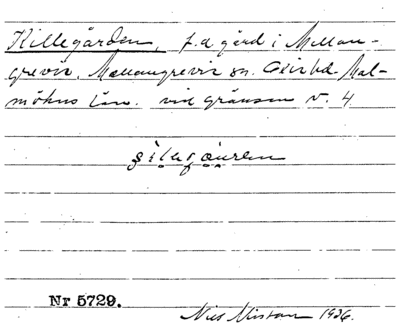 Killegården, f.d gård i Mellan-
grevie, Mellangrevie sn. Oxie hd. Mal-
möhus län. vid gränsen V. 4
Nr 5729.
Nils 1926.